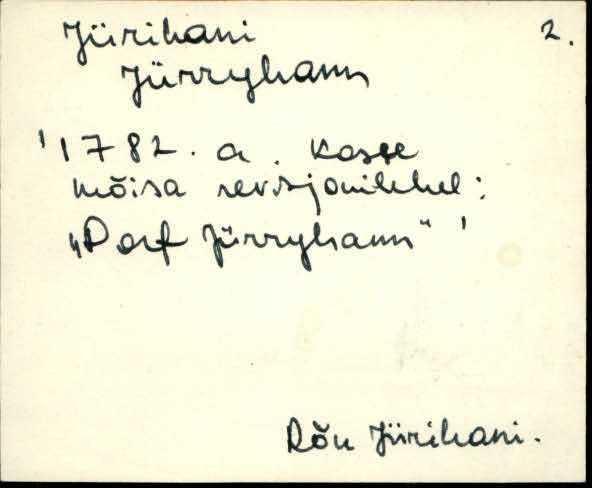 Jürihani 2.
Jürryhann
'1782. a. Kasse
mõisa revisjonilehel:
„Dorf Jürryhann" '
Rõu Jürihani.